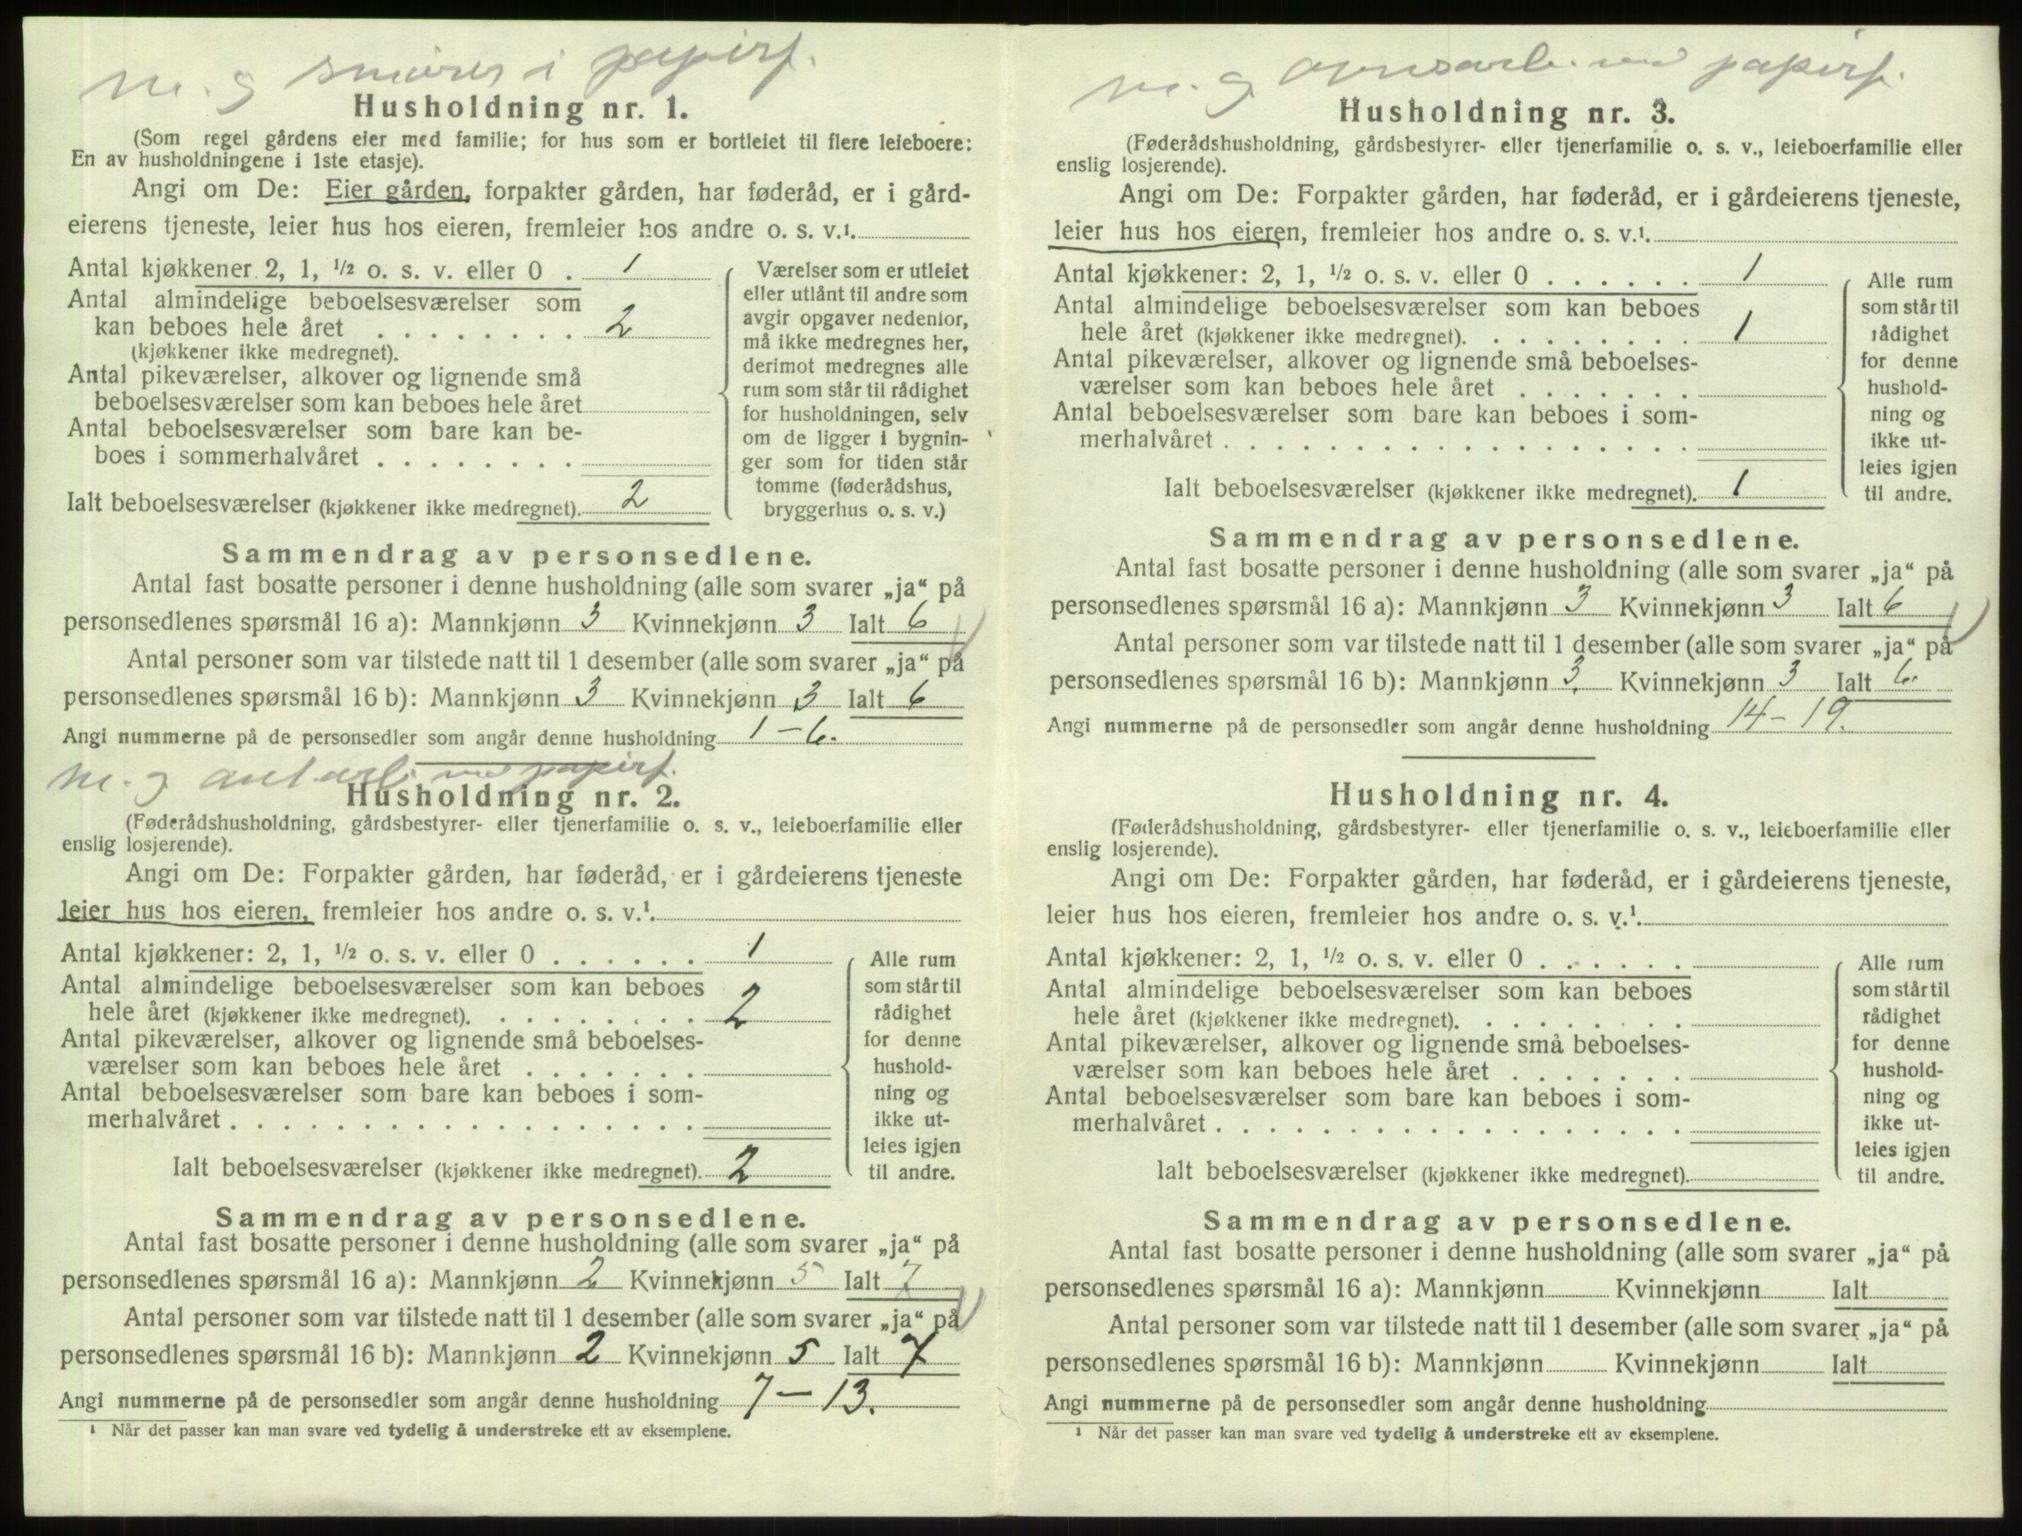 m. g smører i papirf.
Husholdning nr. 1.
(Som regel gårdens eier med familie; for hus som er bortleiet til flere leieboere:
En av husholdningene i 1ste etasje).
Angi om De: Eier gården, forpakter gården, har føderåd, er i gård-
eierens tjeneste, leier hus hos eieren, fremleier hos andre o. s. v.¹.
Antal kjøkkener 2, 1, ½ o. s. v. eller 0 . 1
Antal almindelige beboelsesværelser som
kan beboes hele året . . . . . . . . 2
(kjøkkener ikke medregnet).
Antal pikeværelser, alkover og lignende små
beboelsesværelser som kan beboes hele året
Antal beboelsesværelser som bare kan be-
boes i sommerhalvåret . . . . . . . .
Ialt beboelsesværelser (kjøkkener ikke medregnet). 2
Værelser som er utleiet
eller utlånt til andre som
avgir opgaver nedenfor,
må ikke medregnes her,
derimot medregnes alle
rum som står til rådighet
for husholdningen, selv
om de ligger i bygnin-
ger som for tiden står
tomme (føderådshus,
bryggerhus o. s. v.)
Sammendrag av personsedlene.
Antal fast bosatte personer i denne husholdning (alle som svarer „ja“ på
personsedlenes spørsmål 16 a): Mannkjønn 3 Kvinnekjønn 3 Ialt 6
Antal personer som var tilstede natt til 1 desember (alle som svarer „ja“ på
personsedlenes spørsmål 16 b): Mannkjønn 3 Kvinnekjønn 3 Ialt 6
Angi nummerne på de personsedler som angår denne husholdning 1 – 6.
m. g papirf.
Husholdning nr. 2.
(Føderådshusholdning, gårdsbestyrer- eller tjenerfamilie o. s. v., leieboerfamilie eller
enslig losjerende).
Angi om De: Forpakter gården, har føderåd, er i gårdeierens tjeneste
leier hus hos eieren, fremleier hos andre o. s. v.¹.
Antal kjøkkener: 2, 1, ½ o. s. v. eller 0 . . . . . . 1
Antal almindelige beboelsesværelser som kan beboes
hele året (kjøkkener ikke medregnet). . . . . . . . . 2
Antal pikeværelser, alkover og lignende små beboelses-
værelser som kan beboes hele året . . . . . . .
Antal beboelsesværelser som bare kan beboes i som-
merhalvåret . . . . . . . . . . . . . . . . . .
Ialt beboelsesværelser (kjøkkener ikke medregnet). 2
Alle rum
som står til
rådighet
for denne
hushold-
ning og
ikke ut-
leies igjen
til andre.
Sammendrag av personsedlene.
Antal fast bosatte personer i denne husholdning (alle som svarer „ja“ på
personsedlenes spørsmål 16 a): Mannkjønn 2 Kvinnekjønn 5 Ialt 7
Antal personer som var tilstede natt til 1 desember (alle som svarer „ja“ på
personsedlenes spørsmål 16 b): Mannkjønn 2 Kvinnekjønn 5 Ialt 7
Angi nummerne på de personsedler som angår denne husholdning 7 – 13.
¹ Når det passer kan man svare ved tydelig å understreke ett av eksemplene.
m. g. ovnsarb. ved papirf.
Husholdning nr. 3.
(Føderådshusholdning, gårdsbestyrer- eller tjenerfamilie o. s. v., leieboerfamilie eller
enslig losjerende).
Angi om De: Forpakter gården, har føderåd, er i gårdeierens tjeneste,
leier hus hos eieren, fremleier hos andre o. s. v.¹.
Antal kjøkkener: 2, 1, ½ o. s. v. eller 0 . . . . . . 1
Antal almindelige beboelsesværelser som kan beboes
hele året (kjøkkener ikke medregnet). . . . . . . . . 1
Antal pikeværelser, alkover og lignende små beboelses-
værelser som kan beboes hele året . . . . . . .
Antal beboelsesværelser som bare kan beboes i som-
merhalvåret . . . . . . . . . . . . . . . . . .
Ialt beboelsesværelser (kjøkkener ikke medregnet). 1
Alle rum
som står til
rådighet
for denne
hushold-
ning og
ikke ut-
leies igjen
til andre.
Sammendrag av personsedlene.
Antal fast bosatte personer i denne husholdning (alle som svarer „ja“ på
personsedlenes spørsmål 16 a): Mannkjønn 3 Kvinnekjønn 3 Ialt 6
Antal personer som var tilstede natt til 1 desember (alle som svarer „ja“ på
personsedlenes spørsmål 16 b): Mannkjønn 3. Kvinnekjønn 3 Ialt 6.
Angi nummerne på de personsedler som angår denne husholdning 14 – 19.
Husholdning nr. 4.
(Føderådshusholdning, gårdsbestyrer- eller tjenerfamilie o. s. v., leieboerfamilie eller
enslig losjerende).
Angi om De: Forpakter gården, har føderåd, er i gårdeierens tjeneste,
leier hus hos eieren, fremleier hos andre o. s. v.¹.
Antal kjøkkener: 2, 1, ½ o. s. v. eller 0 . . . . . .
Antal almindelige beboelsesværelser som kan beboes
hele året (kjøkkener ikke medregnet). . . . . . . . .
Antal pikeværelser, alkover og lignende små beboelses-
værelser som kan beboes hele året . . . . . . .
Antal beboelsesværelser som bare kan beboes i som-
merhalvåret . . . . . . . . . . . . . . . . . .
Ialt beboelsesværelser (kjøkkener ikke medregnet).
Alle rum
som står til
rådighet
for denne
hushold-
ning og
ikke ut-
leies igjen
til andre.
Sammendrag av personsedlene.
Antal fast bosatte personer i denne husholdning (alle som svarer „ja“ på
personsedlenes spørsmål 16 a): Mannkjønn Kvinnekjønn Ialt
Antal personer som var tilstede natt til 1 desember (alle som svarer „ja“ på
personsedlenes spørsmål 16 b): Mannkjønn Kvinnekjønn Ialt
Angi nummerne på de personsedler som angår denne husholdning
¹ Når det passer kan man svare ved tydelig å understreke ett av eksemplene.